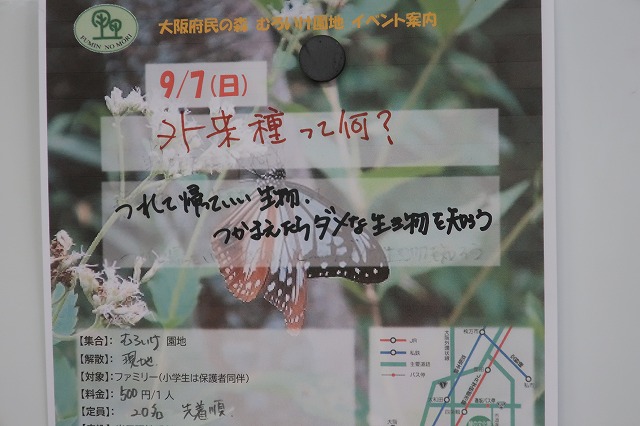 FUMIN NO MORI
大阪府民の森 むろいけ園地 イベント案内
9/7(日)
外来種って何?
つれて帰っていい生物、
つかまえたらダメな生き物を知ろう
【集合】: むろいけ 園地
【解散】: 現地
【対象】:ファミリー(小学生は保護者同伴)
【料金】: 500 円/1人
【定員】: 20名 先着順
JR
私鉄
主要道路
バス停
枚方市